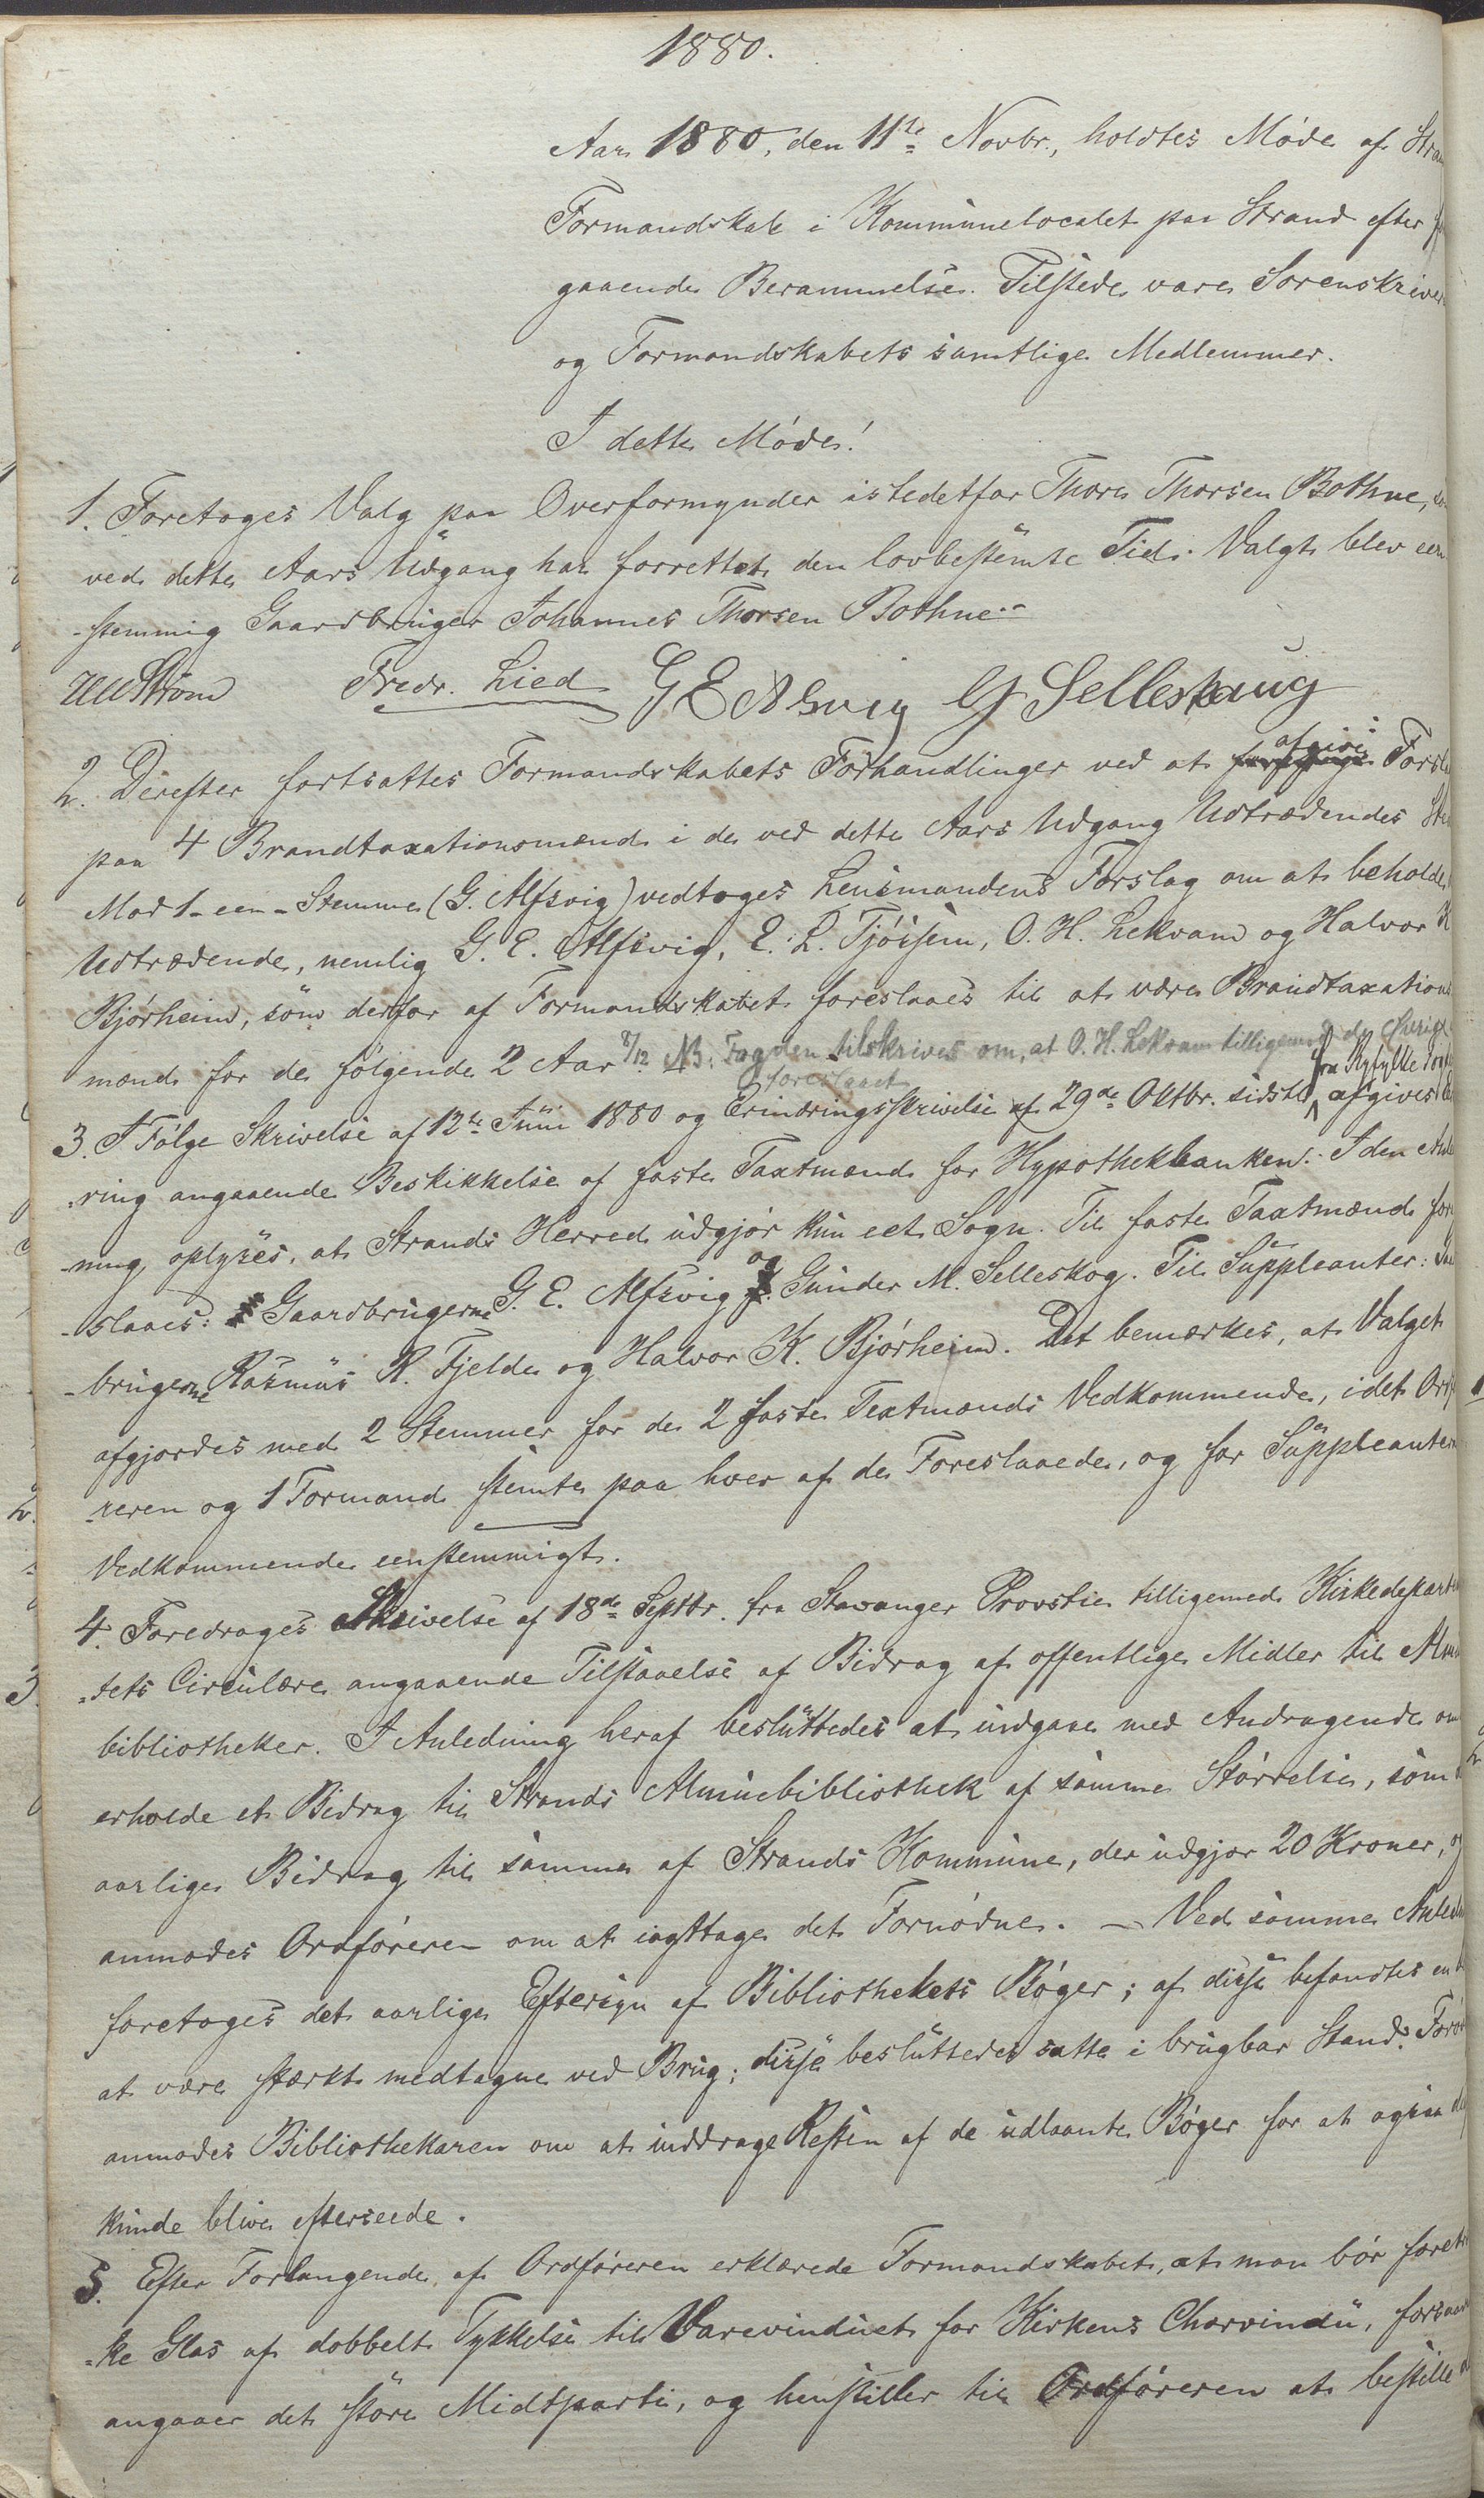 1880.
Aar 1880, den 11te Novbr., holdtes Møde af
Formandskab i Kommunelocalet paa Strand efter
gaaende Berammelse. Tilstede vare Sorenskriver
og Formandskabets samtlige Medlemmer.
I dette Møde!
1. Foretoges Valg paa Overformynder istedetfor Thore Thorsen Bothne,
ved dette Aars Udgang har forrettet den lovbestemte Tid. Valgt blev een
-stemmig Gaardbruger Johannes Thorsen Bothne.-
Fredr. Lied G E Alsvig G Selleskaug
2. Derefter fortsattes Formandskabets Forhandlinger ved at afgive
paa 4 Brandtaxationsmænd i de ved dette Aars Udgang Udtrædendes
Mod 1-een-Stemme (G. Alfsvig) vedtoges Lensmandens Forslag om at beholde
Udtrædende, nemlig G. E. Alfsvig, E. L. Tjøssem, O. H. Lekvam og Halvor K
Bjørheim, som derfor af Formandskabet foreslaaes til at være Brandtaxations
mænd for de følgende 2 Aar. 8/12 NB: Fogden tilskrives om, at O. H. Lekvam tilligemed de
foreslaaet
fra Ryfylke
3. I Følge Skrivelse af 12te Juni 1880 og Erindringsskrivelse af 29de Oktbr. sidstl. afgives
-ring angaaende Beskikkelse af faste Taxtmænd for Hypothekbanken: I den
-ning oplyses, at Strands Herred udgjør kun eet Sogn. Til faste Taxtmænd
-slaaes: Gaardbrugerne G. E. Alfsvig og Gunder M. Selleskog. Til Suppleanter:
-brugerne Rasmus R. Fjelde og Halvor K. Bjørheim. Det bemærkes, at Valget
afgjordes med 2 Stemmer for de 2 faste Textmænds Vedkommende, idet
-reren og 1 Formand stemte paa hver af de Foreslaaede, og for Suppleanternes
Vedkommende eenstemmigt.
4. Foredroges Skrivelse af 18de Septbr. fra Stavanger Provstie tilligemed Kirkedeparte
-tets Circulære angaaende Tilstaaelse af Bidrag af offentlige Midler til
bibliotheker. I Anledning heraf besluttedes at indgaae med Andragende om
erholde et Bidrag til Strands Almuebibliothek af samme Størrelse, som
aarlige Bidrag til samme af Strands Kommune, der udgjør 20 Kroner, og
anmodes Ordføreren om at iagttage det Fornødne. — Ved samme
foretoges det aarlige Eftersyn af Bibliothekets Bøger; af disse befandtes en
at være stærkt medtagne ved Brug; disse besluttedes satte i brugbar Stand.
anmodes Bibliothekaren om at inddrage Resten af de udlaante Bøger for at ogsaa
kunde blive efterseede.
5. Efter Forlangende af Ordføreren erklærede Formandskabet, at man bør
-ke Glas af dobbelt Tykkelse til Varevinduet for Kirkens Chorvindu,
angaaer det store Midtparti, og henstiller til Ordføreren at bestille